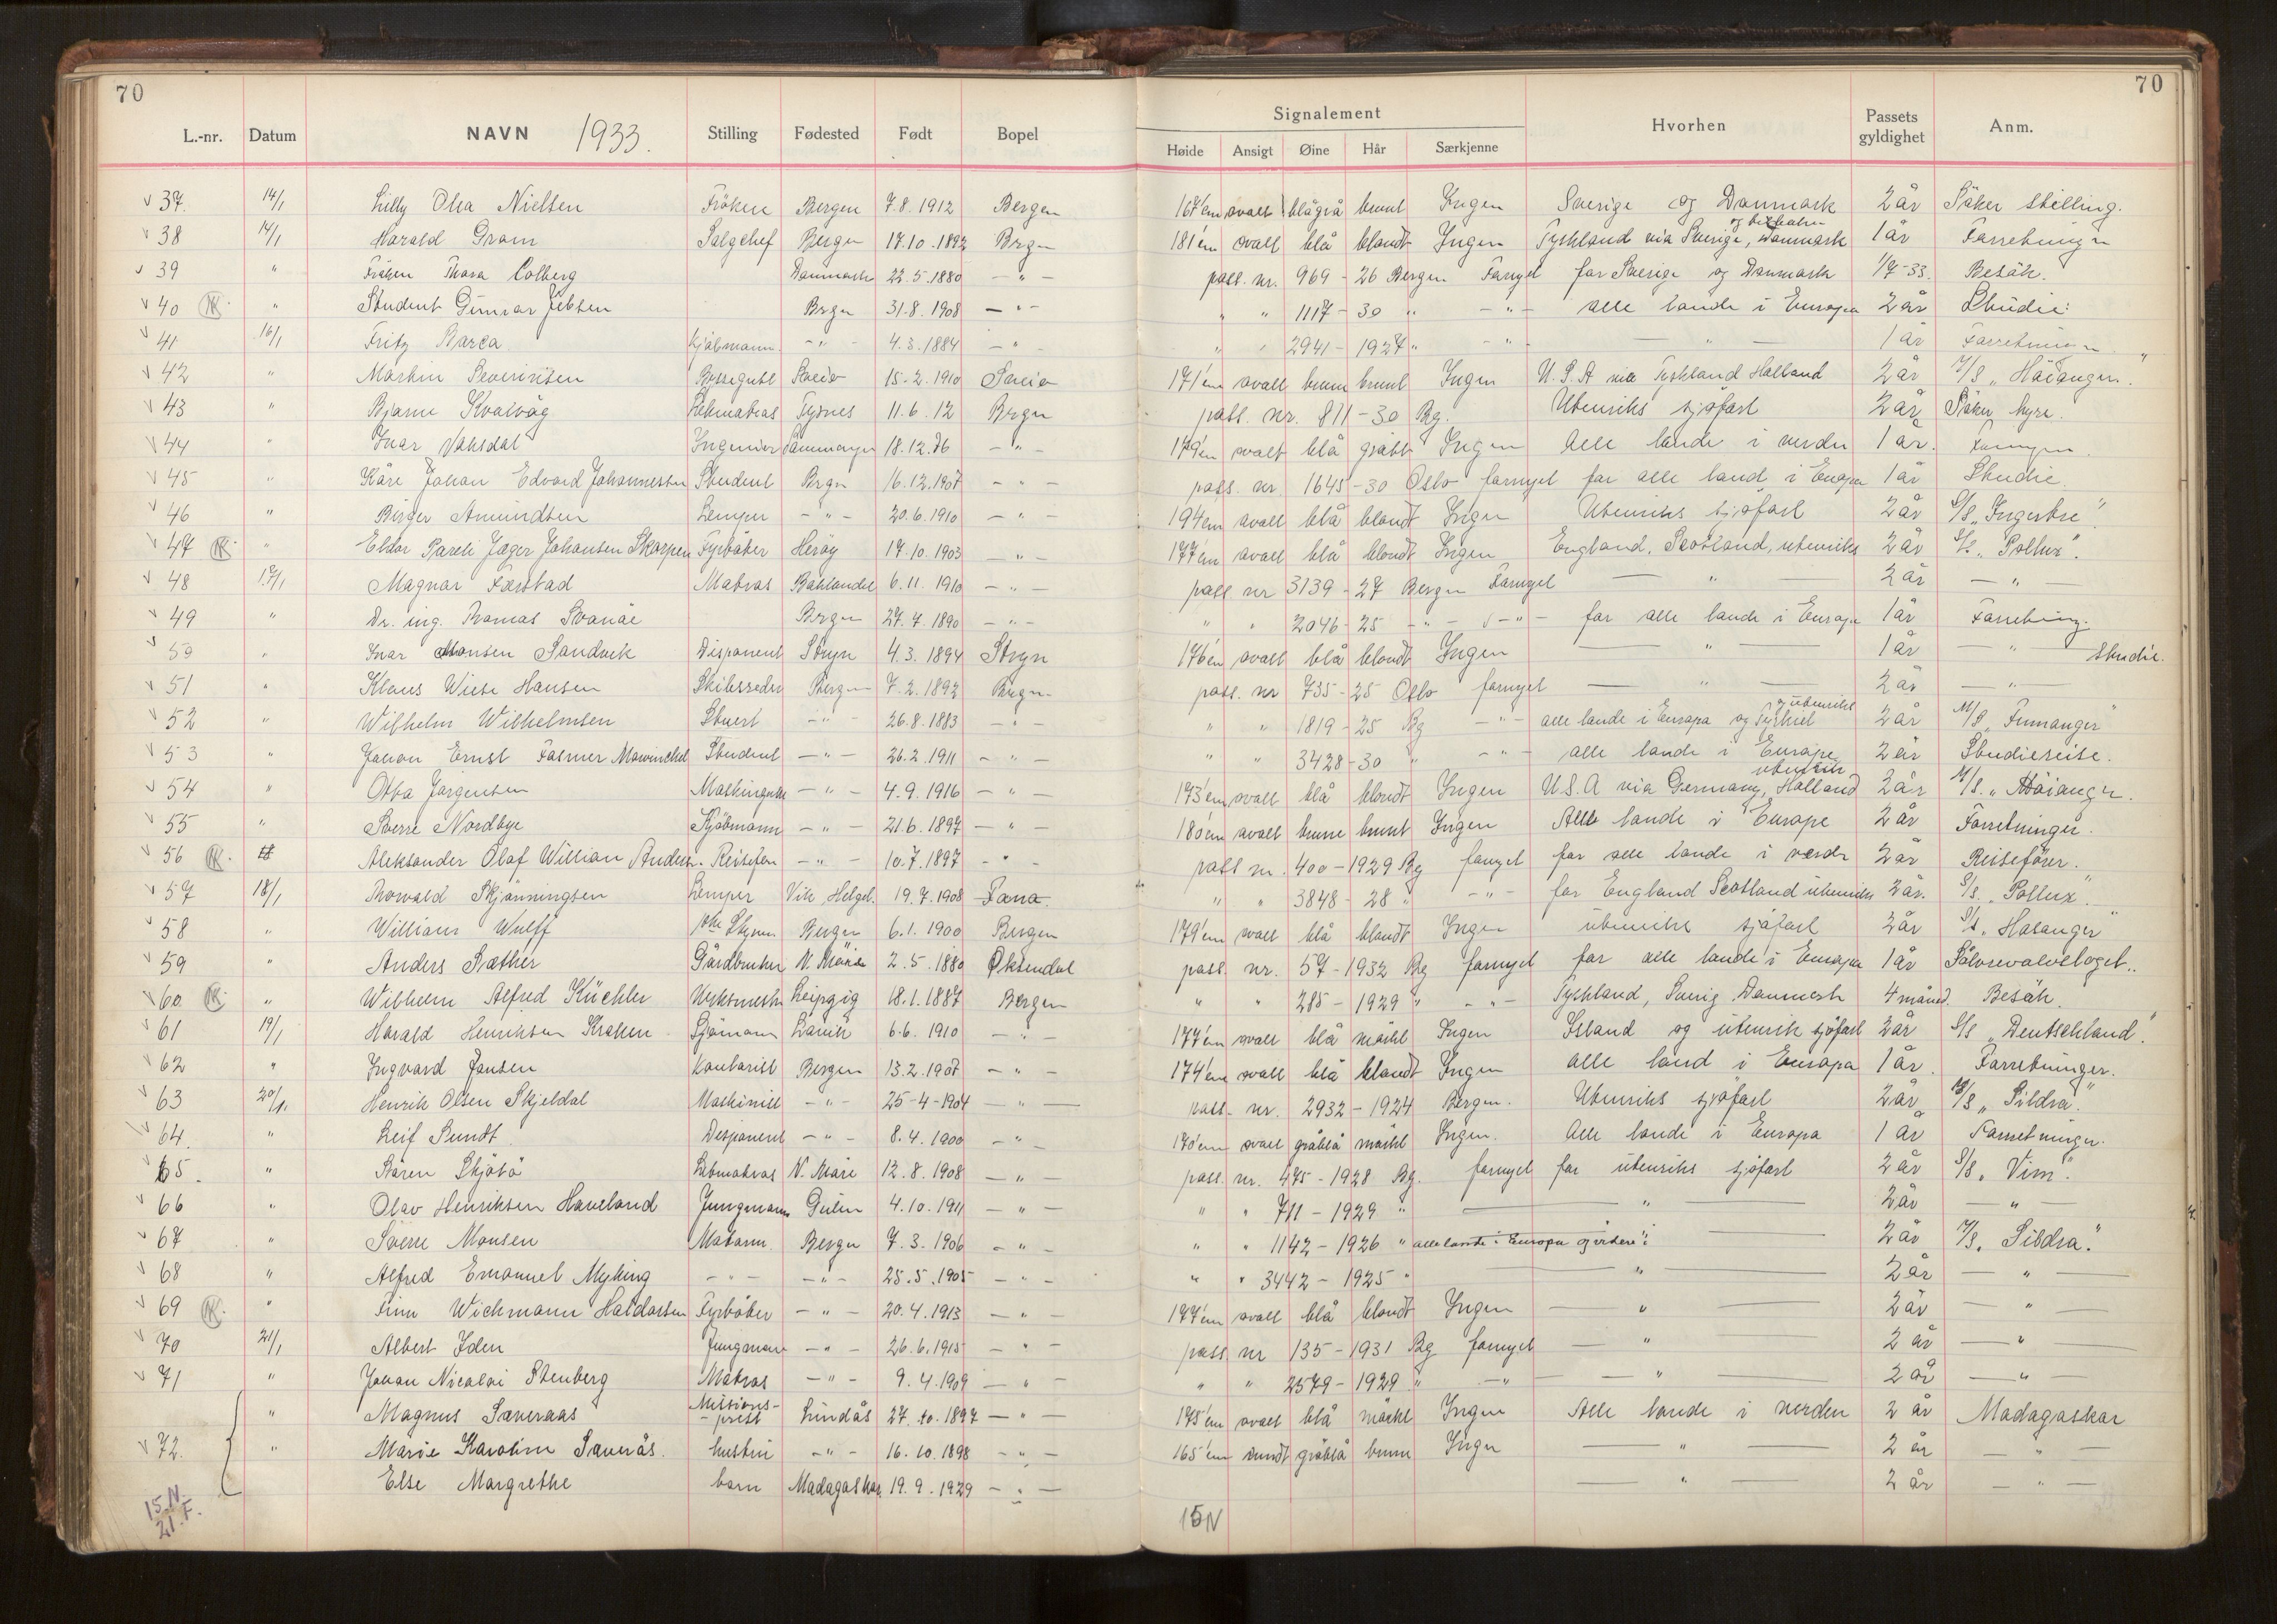 70 70
Signalement
L.-nr. Datum NAVN 1933. Stilling Fødested Født Bopel Høide Ansigt Øine Hår Særkjenne Hvorhen Passets gyldighet Anm.
37. 14/1 Lilly Olea Nielsen Frøken Bergen 7.8.1912 Bergen 167 cm ovalt blågrå brunt Ingen Sverige og Danmark 2 år Søker stilling.
38 14/1 Harald Gram Salgchef Bergen 17.10.1892 Brgn 181 cm ovalt blå blondt Ingen Tyskland via Sverige, Danmark 1 år Forretninger
39 " Frøken Thora Colberg Danmark 22.5.1880 - " - pass. nr. 969 - 26 Bergen Fornyet for Sverige og Danmark 1/7-33. Besøk.
40 " Student Gunnar Jebsen Brgn 31.8.1908 - " - " " 1117 - 30 " - " - alle lande i Europa 2 år Studie.
41 16/1 Fritz Barca Kjøbmann - " - 4.3.1884 - " - " " 2941 - 1927 " - " - - " - 1 år Forretninger
42 " Martin Severinsen Byssegutt Sneis 15.2.1910 Sneis 171 cm ovalt brune brunt Ingen U.S.A via Tyskland Holland 2 år M/S „Høianger"
43 " Bjarne Kvalvåg Letmatros Tysnes 11.6.12 Brgn pass. nr. 811 - 30 Bg. Utenriks sjøfart 2 år Søker hyre.
44 " Ivar Vaksdal Ingeniør 18.12.86 - " - 179 cm ovalt blå grått Ingen Alle lande i verden 1 år.
45 " Kåre Johan Edvard Johannessen Student Brgn 16.12.1907 - " - pass. nr. 1645 - 30 Oslo fornyet for alle land i Europa 1 år Studie.
46 " Birger Amundsen Lemper - " - 20.6.1910 - " - 194 cm ovalt blå blondt Ingen Utenriks sjøfart 2 år S/S „Ingertre".
47 " Eldor Pareli Jæger Johansen Skarpen Fyrbøter Herøy 17.10.1903 - " - 177 cm ovalt blå blondt Ingen England, Scotland, utenriks 2 år S/S „Pollux".
48 17/1 Magnar Færstad Matros Baklandet 6.11.1910 - " - pass nr 3139 - 27 Bergen Fornyet - " - 2 år - " -
49 " Dr. ing. Thomas Svanøe Bergen 27.7.1890 - " - " " 2046 - 25 - " - - " - for alle lande i Europa 1 år Forretning.
50 " Ivar Monsen Sandvik Disponent Stryn 4.3.1894 Stryn 176 cm ovalt blå blondt Ingen - " - 1 år - " - Studie.
51 " Klaus Wiese Hansen Skibsreder Bergen 7.2.1892 Brgn. pass. nr 735 - 25 Oslo fornyet - " - 2 år - " -
52 " Wilhelm Wilhelmsen Stuert - " - 26.8.1883 - " - " " 1819 - 25 Bg - " - alle lande i Europa og utenriks 2 år M/S „Finnanger"
53 " Johan Ernst Fasmer Mowinckel Student - " - 26.2.1911 - " - " " 3428 - 30 " - " - alle lande i Europa 2 år Studiereise.
54 " Otto Jørgensen Maskingutt - " - 4.9.1916 - " - 173 cm ovalt blå blondt Ingen U.S.A via Germany, Holland utenrik 2 år M/S. „Høianger.
55 " Sverre Nordbye Kjøbmann - " - 21.6.1897 - " - 180 cm ovalt brune brunt Ingen Alle lande i Europe 2 år Forretninger.
56 18 Aleksander Olaf William Anders. Reisefører - " - 10.7.1897 - " - pass nr. 400 - 1929 Bg fornyet for alle lande i verdn 2 år Reisefører.
57 18/1 Thorvald Skjønningsen Lemper Vik Helgel. 19.7.1908 Fana. " " 3848 - 28 " - " - for England Scotland utenriks 2 år. S/S. „Pollux."
58 " William Wulff 1ste Styrm Bergen 6.1.1900 Bergen 179 cm ovalt blå blondt Ingen utenriks sjøfart 2 år S/S „Hosanger"
59 " Anders Sæther Gårdbruker N. Møre 2.5.1880 Øksendal pass. nr. 57 - 1932 Bg fornyet for alle lande i Europa 1 år Sølvrevavlslaget.
60 " Wilhelm Alfred Küchler Verksmester Leipzig 18.1.1887 Bergen " " 285 - 1929 " - " - Tyskland, Sverig, Danmark 4 måned. Besøk.
61 19/1 Harald Henriksen Kraken Sjømann Larvik 6.6.1910 - " - 177 cm ovalt blå mørkt Ingen Island og utenrik sjøfart 2 år S/S „Deutschland".
62 " Ingvard Jansen Kontorist Bergen 13.2.1907 - " - 174 cm ovalt blå blondt Ingen alle land i Europa 1 år Forretninger.
63 20/1. Henrik Olsen Skjeldal Maskinist - " - 25-4-1904 - " - pass. nr. 2932 - 1924 Bergen. Utenriks sjøfart 2 år M/S „Sildra."
64. " Leif Sundt Disponent - " - 8.4.1900 - " - 170 cm ovalt gråblå mørkt Ingen. Alle lande i Europa 1 år Forretninger.
65. " Søren Skjøtø Letmatros N. Møre 12.8.1908 - " - pass. nr. 475 - 1928 Bg. fornyet for utenriks sjøfart 2 år S/S „Vim".
66 " Olav Henriksen Haveland Jungmann Gulen 4.10.1911 - " - " " 711 - 1929 " - " - 2 år - " -
67 " Sverre Monsen Matann. Bergen 7.3.1906 - " - " " 1142 - 1926 " alle lande i Europa og videre 2 år M/S „Sildra."
68 " Alfred Emanuel Myking - " - - " - 25.5.1905 - " - " " 3442 - 1925 " - " - 2 år - " -
69 " Finn Wichmann Haldorsen Fyrbøter - " - 20.4.1913 - " - 177 cm ovalt blå blondt Ingen - " - 2 år - " -
70 21/1 Albert Iden Jungmann - " - 26.6.1915 - " - pass nr 135 - 1931 Bg fornyet - " - 2 år - " -
71 " Johan Nicolai Stenberg Matros - " - 9.4.1909 - " - " " 2579 - 1929 " - " - - " - 2 år - " -
" Magnus Sæveraas Missions-prest Lindås 27.10.1897 - " - 175 cm ovalt blå mørkt Ingen Alle lande i verden 2 år Madagaskar
72. " Marie Karoline Sæverås. hustru - " - 16.10.1898 - " - 165 cm rundt gråblå brune Ingen - " - 2 år - " -
Else Margrethe barn Madagaskar 19.9.1929 - " - - " - 2 år - " -
15.N. 15N
21.F.